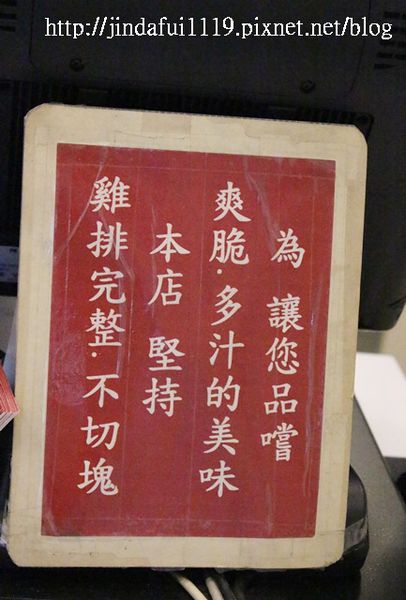 http://jindafui1119.pixnet.net/blog
為 讓您品嚐
爽脆.多汁的美味
本店 堅持
雞排完整.不切塊